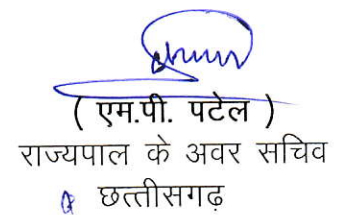 ( एम.पी. पटेल )
राज्यपाल के अवर सचिव
छत्तीसगढ़